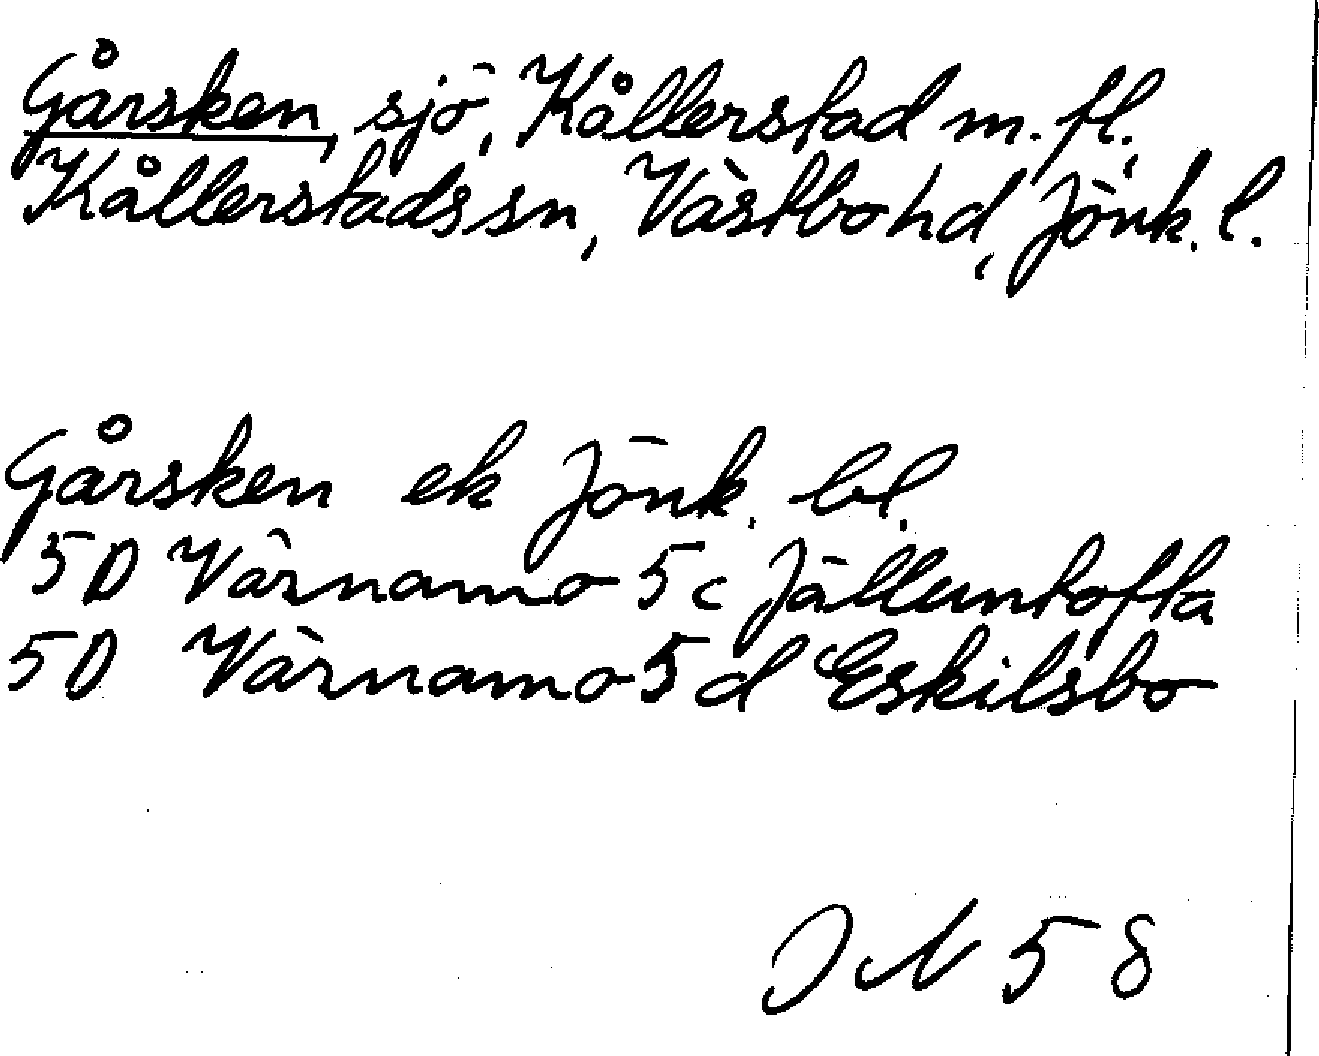 Gårsken, sjö, Kållerstad m. fl.,
Kållerstads sn, Västbo hd, Jönk. l.
Gårsken ek Jönk. bl.
5D Värnamo 5c Jälluntofta
5D Värnamo 5d Eskilsbo
JN 58